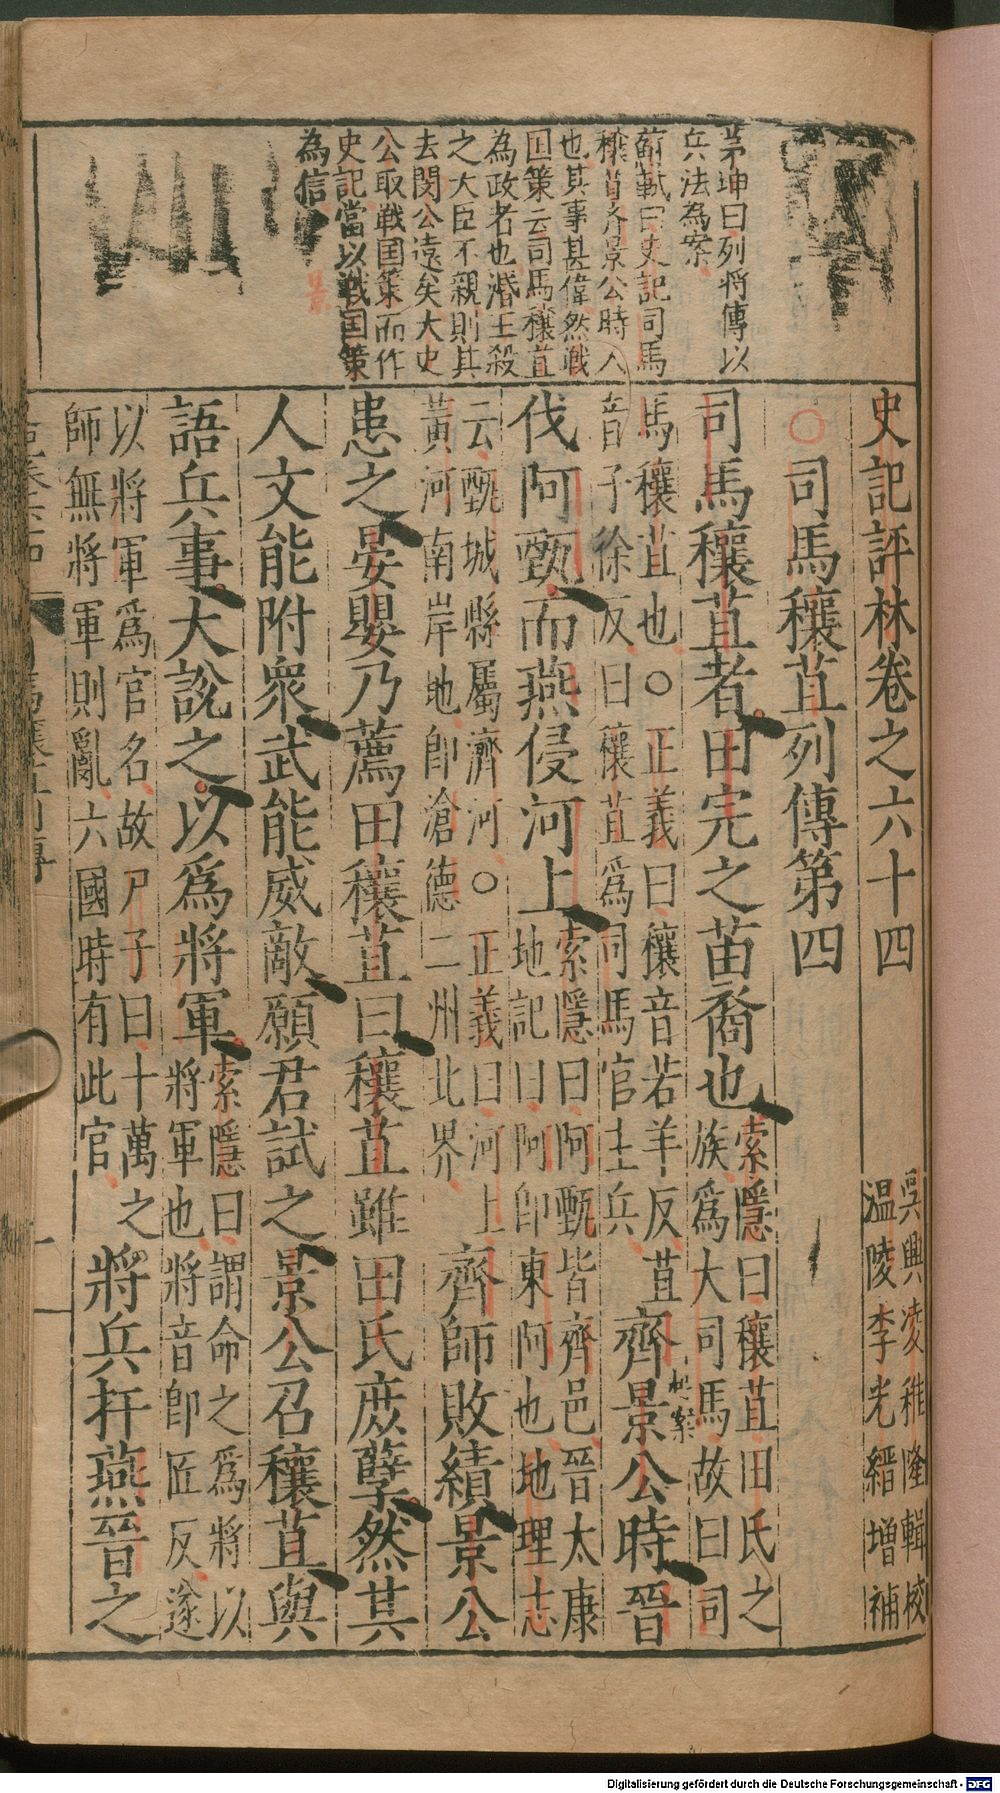 史記評林卷之六十四
吳興凌稚隆輯校
溫陵李光縉增補
司馬穰苴列傳第四
司馬穰苴者田完之苗裔也
索隱曰穰苴田氏之
族為大司馬故曰司
馬穰苴也○正義曰穰音若羊反苴
音子徐反曰穰苴爲司馬官主兵
齊景公時晉
伐阿甄而燕侵河上
索隱曰阿甄皆齊邑晉太康
地記曰阿即東阿也地理志
云甄城縣屬濟河○正義曰河上
黃河南岸地即滄德二州北界
齊師敗績景公
患之晏嬰乃薦田穰苴曰穰苴雖田氏庶孽然其
人文能附衆武能威敵願君試之景公召穰苴與
語兵事大說之以爲將軍
索隱曰謂命之爲將以
將軍也將音即匠反遂
以將軍爲官名故尸子曰十萬之
師無將軍則亂六國時有此官
將兵扞燕晉之
茅坤曰列將傳以
兵法為案
蘇軾曰史記司馬
穰苴齊景公時人
也其事甚偉然戰
囯策云司馬穰苴
為政者也湣王殺
之大臣不親則其
去閔公遠矣太史
公取戦囯策而作
史記當以戦囯策
為信
景
Digitalisierung gefördert durch die Deutsche Forschungsgemeinschaft - DFG